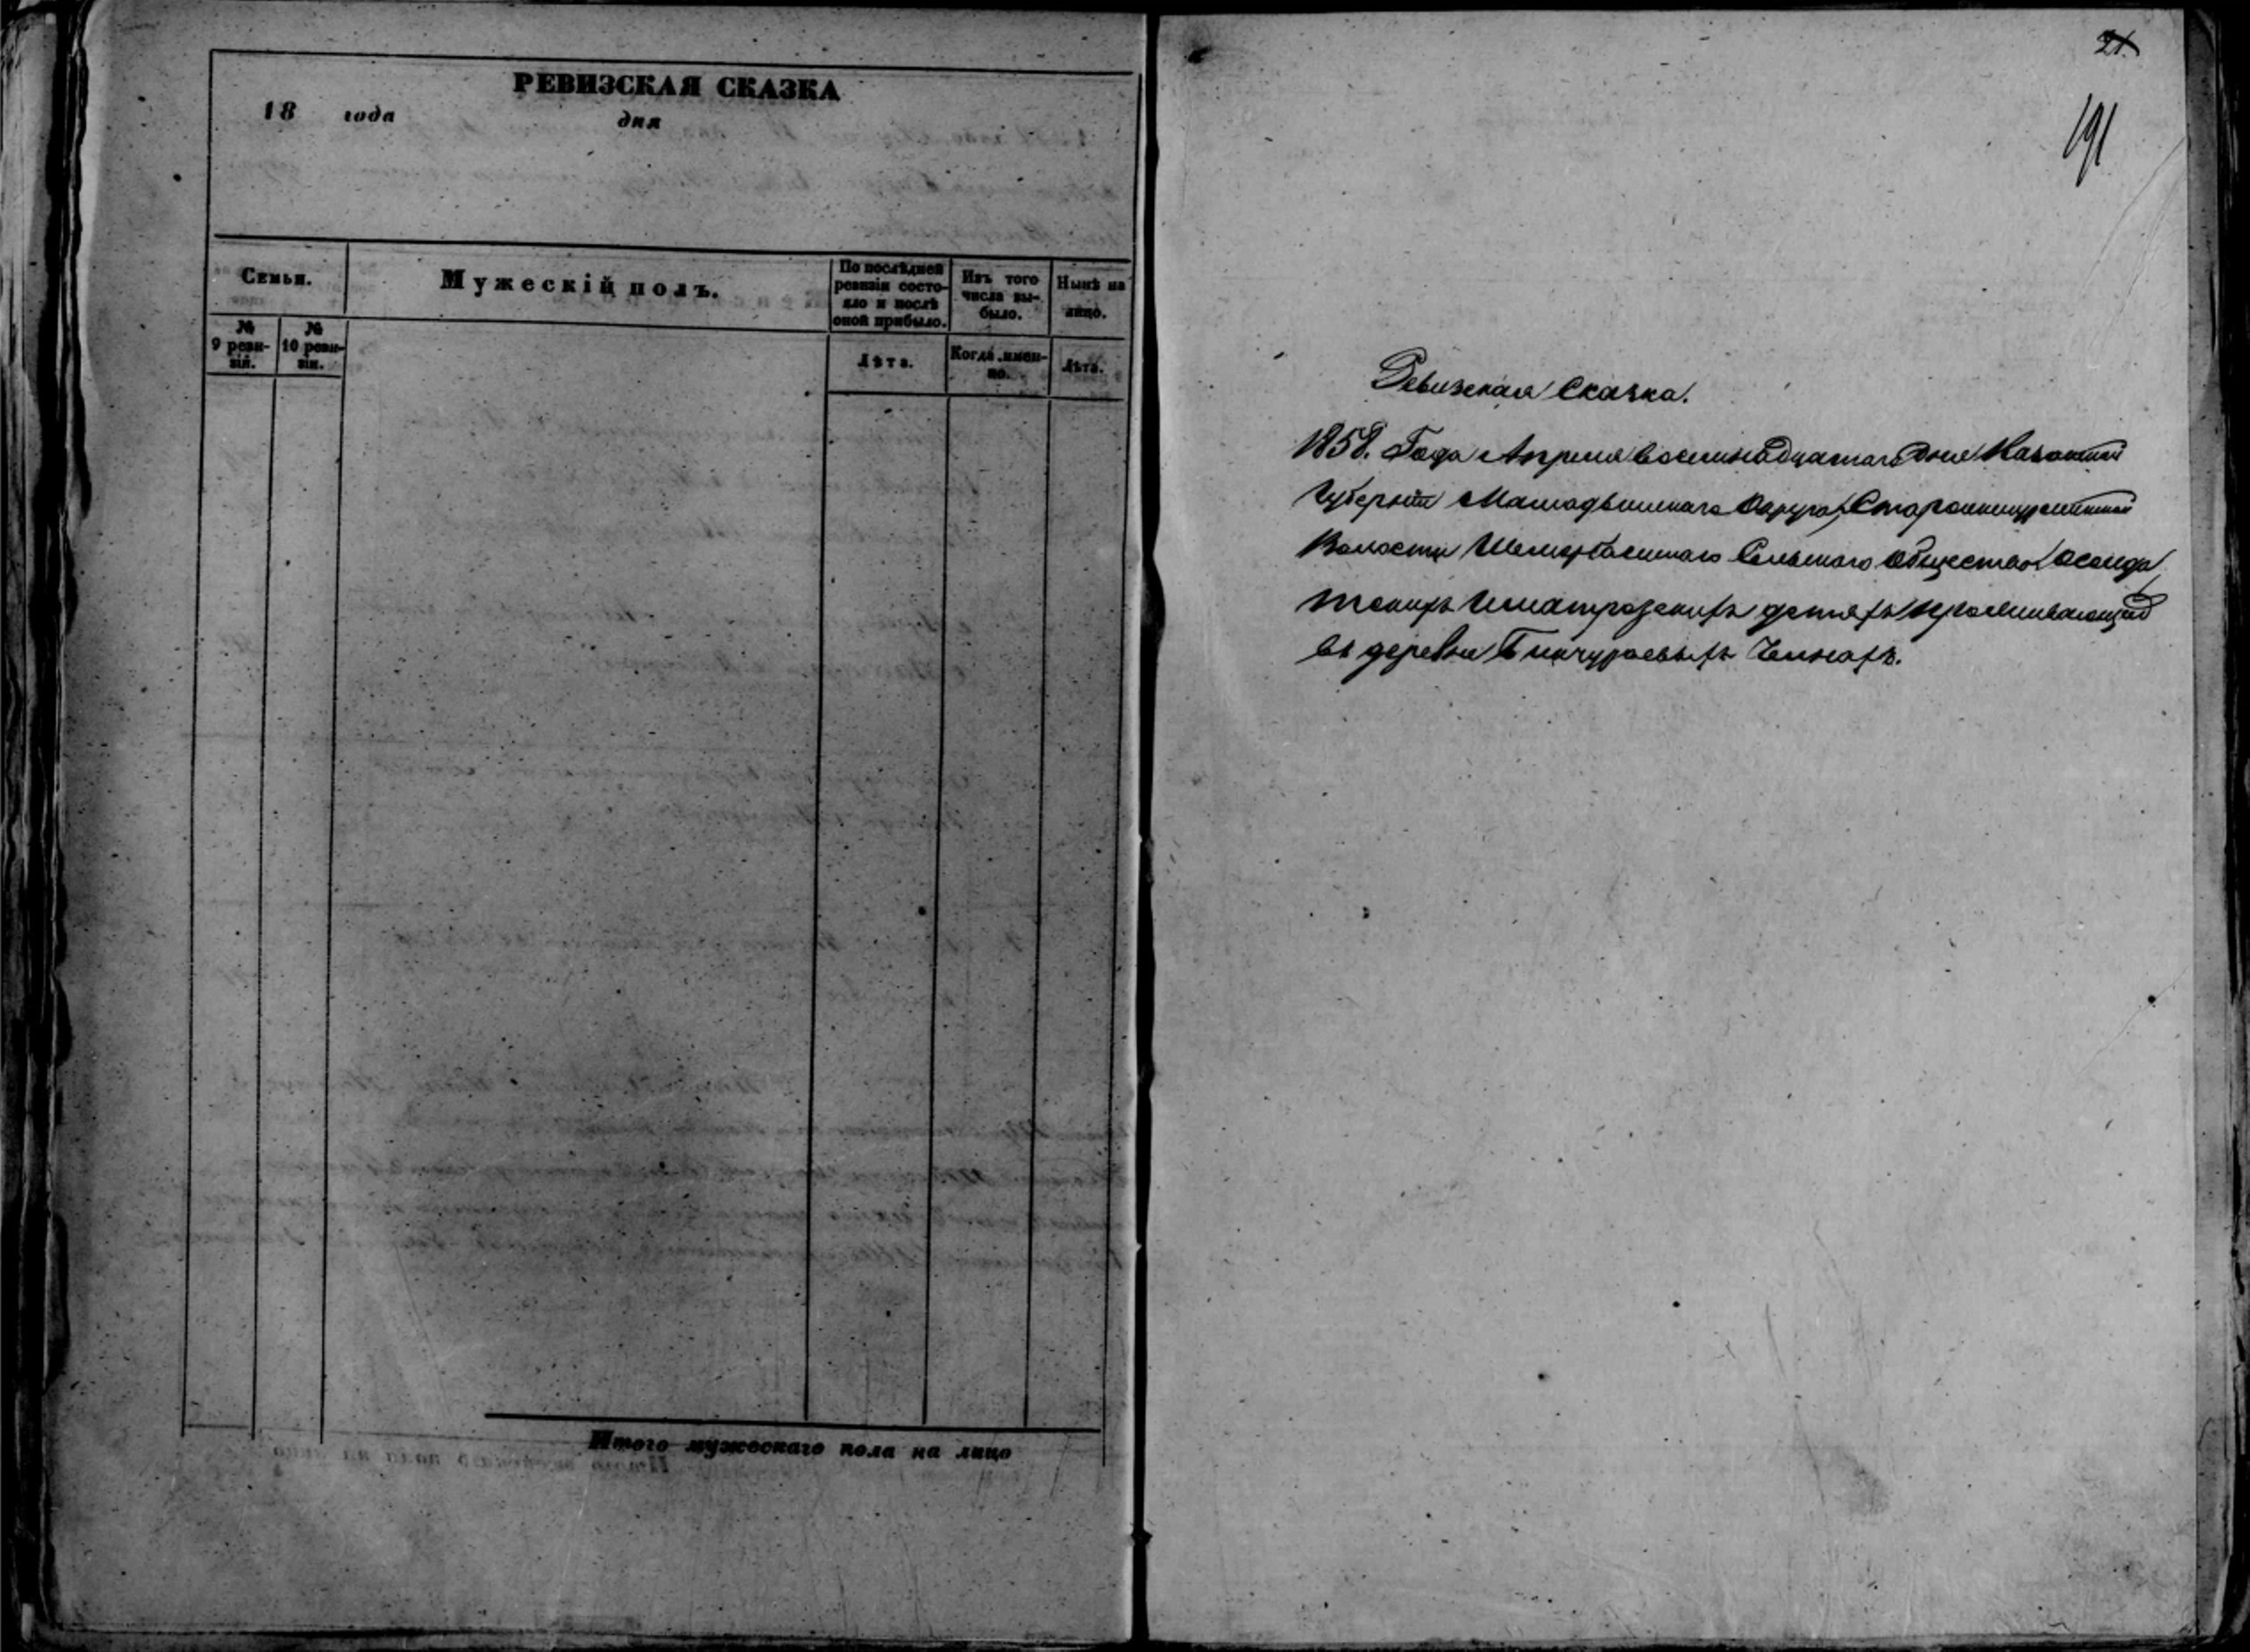 РЕВИЗСКАЯ СКАЗКА
18 года дня
Семьи.
Мужескій полъ.
По послѣдней ревизіи состо-
яло и послѣ
оной прибыло.
Изъ того
числа вы-
было.
Нынѣ на
лицо.
№
9 реви-
зій.
№
10 реви-
зіи.
Лѣта.
Когда имен-
но.
Лѣта.
Итого мужескаго пола на лицо
21.
191
Ревизская Сказка.
1858. Года Апреля восемнадцатаго дня Казанской
Губерніи Мамадышскаго Округа
Волости Сельскаго Общества
детяхъ
въ деревни Чинахъ.